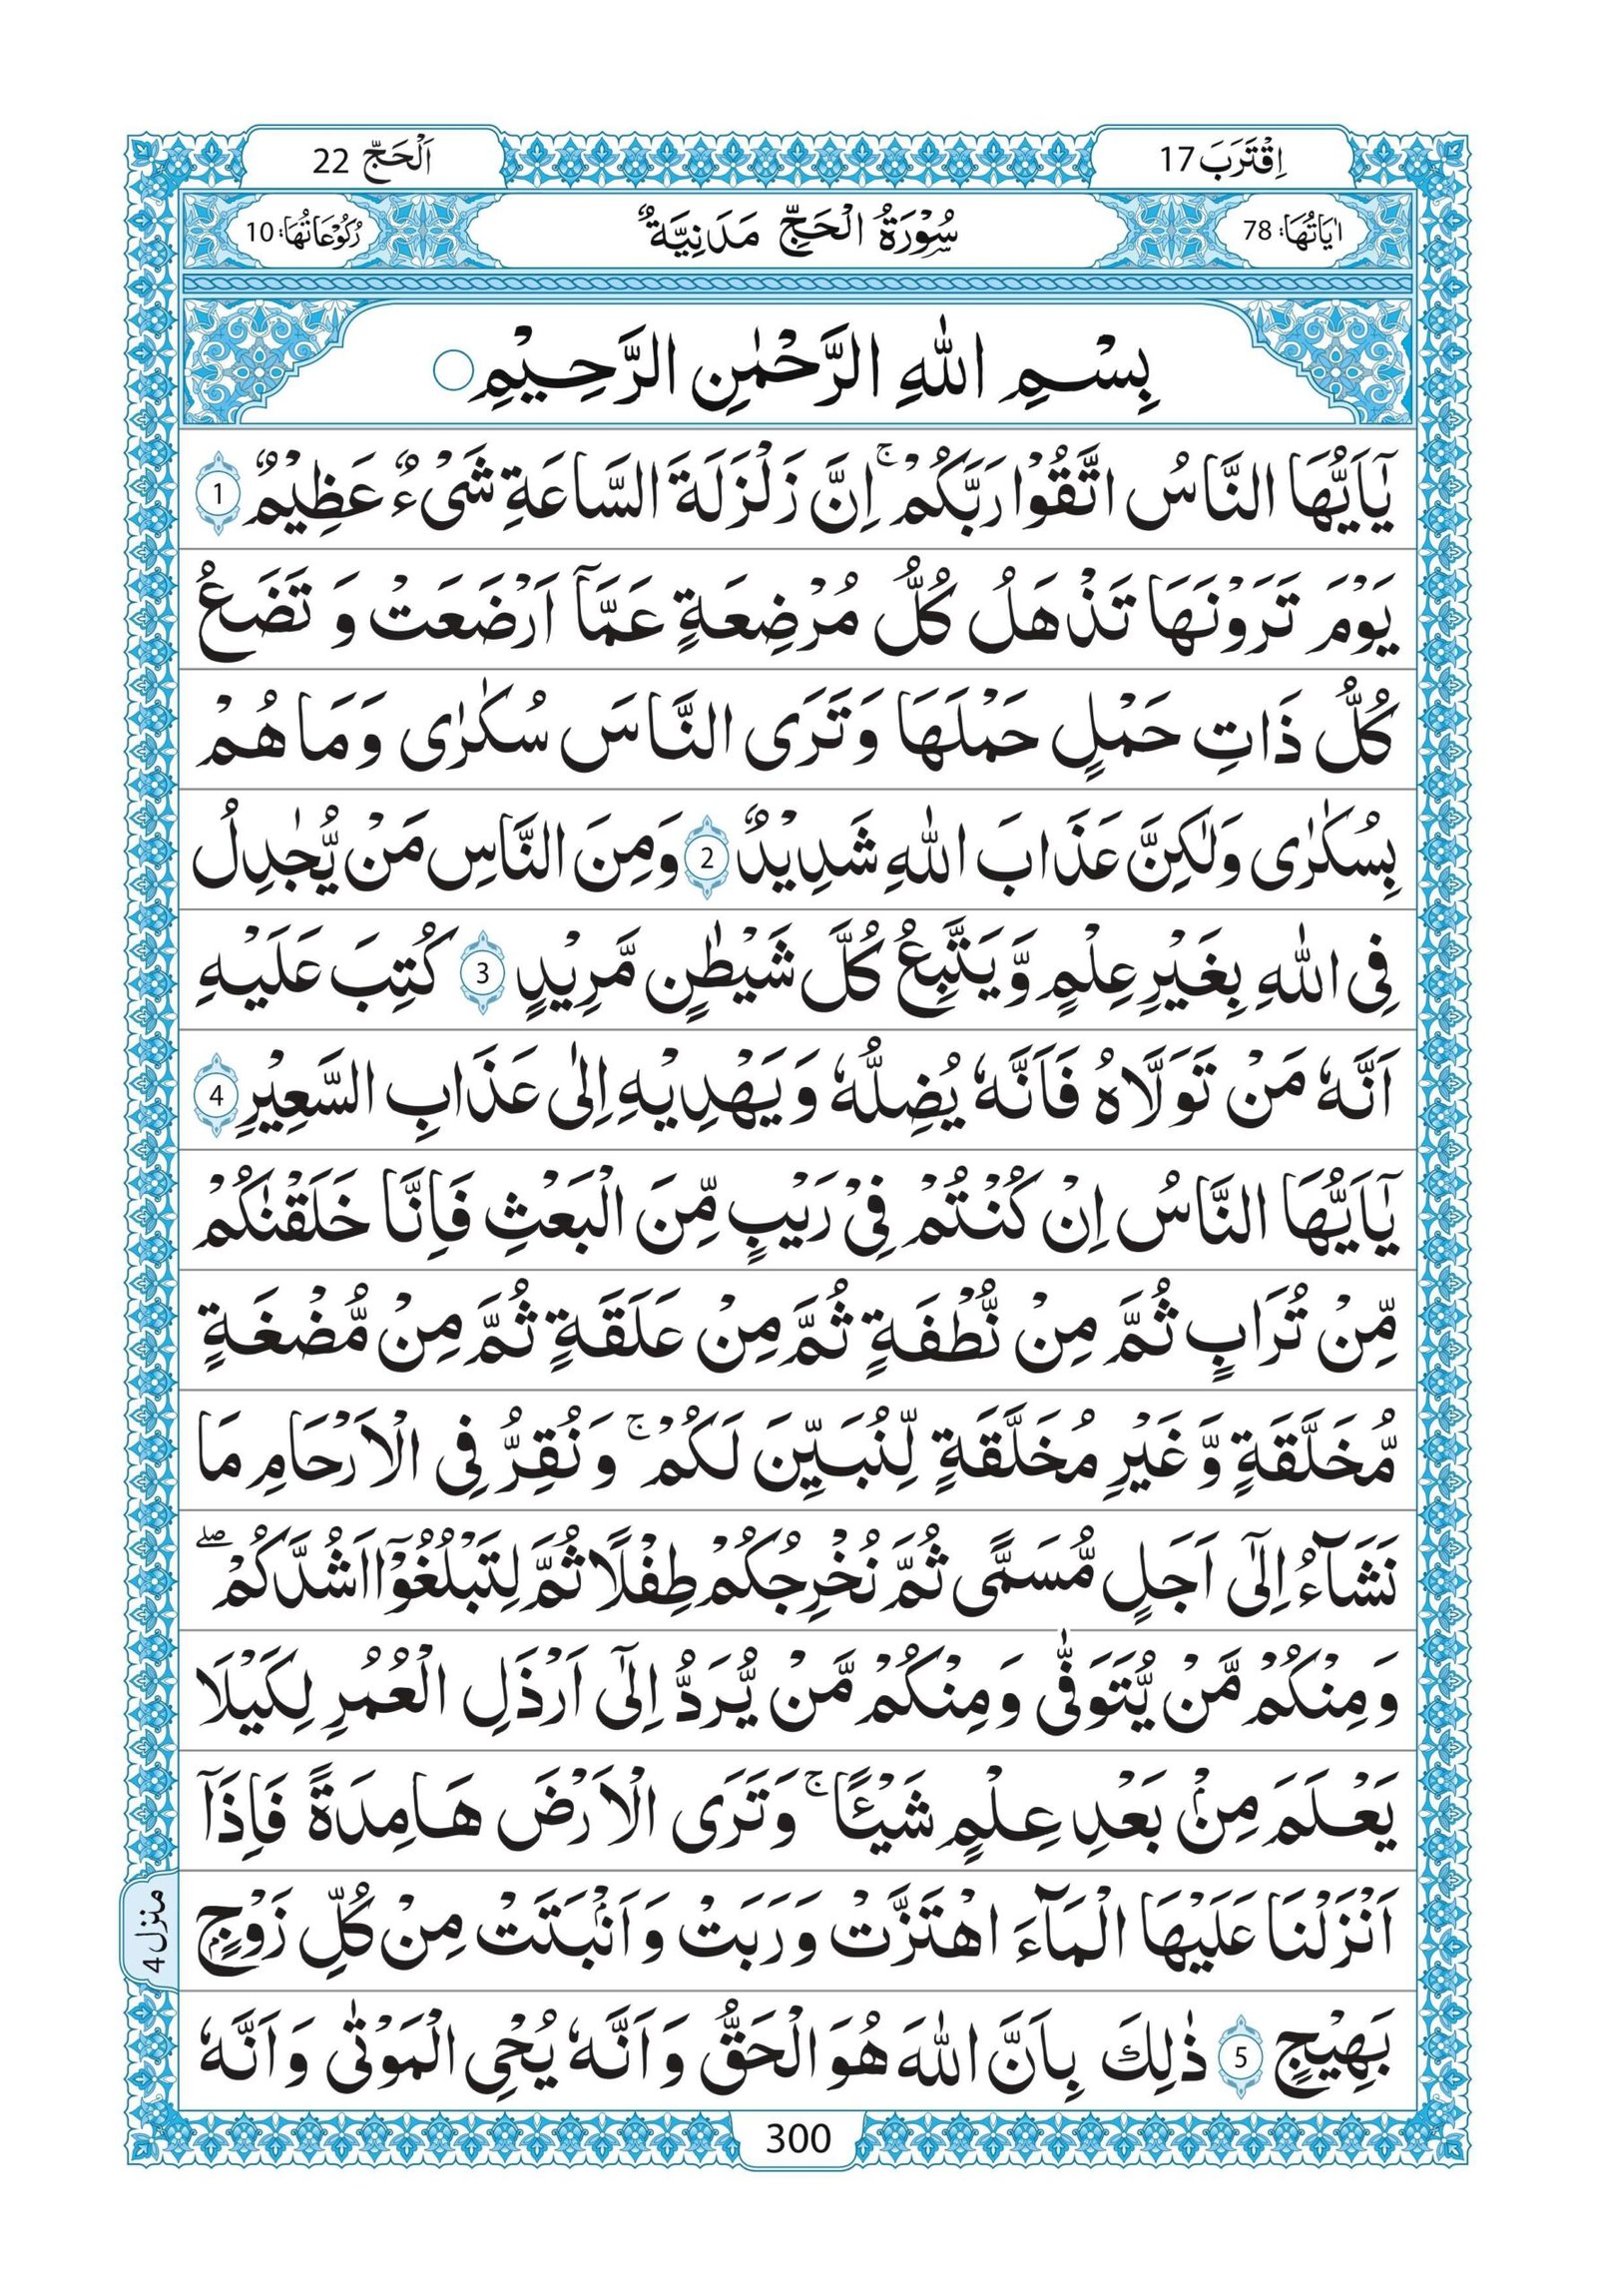 اِقْتَرَبَ 17
اَلْحَجّ 22
اٰيَاتُهَا: 78
سُوْرَةُ الْحَجِّ مَدَنِيَّةٌ
رُكُوْعَاتُهَا: 10
بِسْمِ اللّٰهِ الرَّحْمٰنِ الرَّحِيْمِ
يٰۤاَيُّهَا النَّاسُ اتَّقُوْا رَبَّكُمْ ۚ اِنَّ زَلْزَلَةَ السَّاعَةِ شَىْءٌ عَظِيْمٌ 1
يَوْمَ تَرَوْنَهَا تَذْهَلُ كُلُّ مُرْضِعَةٍ عَمَّاۤ اَرْضَعَتْ وَ تَضَعُ
كُلُّ ذَاتِ حَمْلٍ حَمْلَهَا وَتَرَى النَّاسَ سُكٰرٰى وَمَا هُمْ
بِسُكٰرٰى وَلٰكِنَّ عَذَابَ اللّٰهِ شَدِيْدٌ 2 وَمِنَ النَّاسِ مَنْ يُّجٰدِلُ
فِى اللّٰهِ بِغَيْرِ عِلْمٍ وَّيَتَّبِعُ كُلَّ شَيْطٰنٍ مَّرِيْدٍ 3 كُتِبَ عَلَيْهِ
اَنَّهٗ مَنْ تَوَلَّاهُ فَاَنَّهٗ يُضِلُّهٗ وَيَهْدِيْهِ اِلٰى عَذَابِ السَّعِيْرِ 4
يٰۤاَيُّهَا النَّاسُ اِنْ كُنْتُمْ فِىْ رَيْبٍ مِّنَ الْبَعْثِ فَاِنَّا خَلَقْنٰكُمْ
مِّنْ تُرَابٍ ثُمَّ مِنْ نُّطْفَةٍ ثُمَّ مِنْ عَلَقَةٍ ثُمَّ مِنْ مُّضْغَةٍ
مُّخَلَّقَةٍ وَّغَيْرِ مُخَلَّقَةٍ لِّنُبَيِّنَ لَكُمْ ۚ وَنُقِرُّ فِى الْاَرْحَامِ مَا
نَشَآءُ اِلٰٓى اَجَلٍ مُّسَمًّى ثُمَّ نُخْرِجُكُمْ طِفْلًا ثُمَّ لِتَبْلُغُوْۤا اَشُدَّكُمْ ۖ
وَمِنْكُمْ مَّنْ يُّتَوَفّٰى وَمِنْكُمْ مَّنْ يُّرَدُّ اِلٰٓى اَرْذَلِ الْعُمُرِ لِكَيْلَا
يَعْلَمَ مِنْۢ بَعْدِ عِلْمٍ شَيْـًٔا ۚ وَتَرَى الْاَرْضَ هَامِدَةً فَاِذَاۤ
اَنْزَلْنَا عَلَيْهَا الْمَآءَ اهْتَزَّتْ وَرَبَتْ وَاَنْۢبَتَتْ مِنْ كُلِّ زَوْجٍۭ
بَهِيْجٍ 5 ذٰلِكَ بِاَنَّ اللّٰهَ هُوَ الْحَقُّ وَاَنَّهٗ يُحْىِ الْمَوْتٰى وَاَنَّهٗ
منزل 4
300